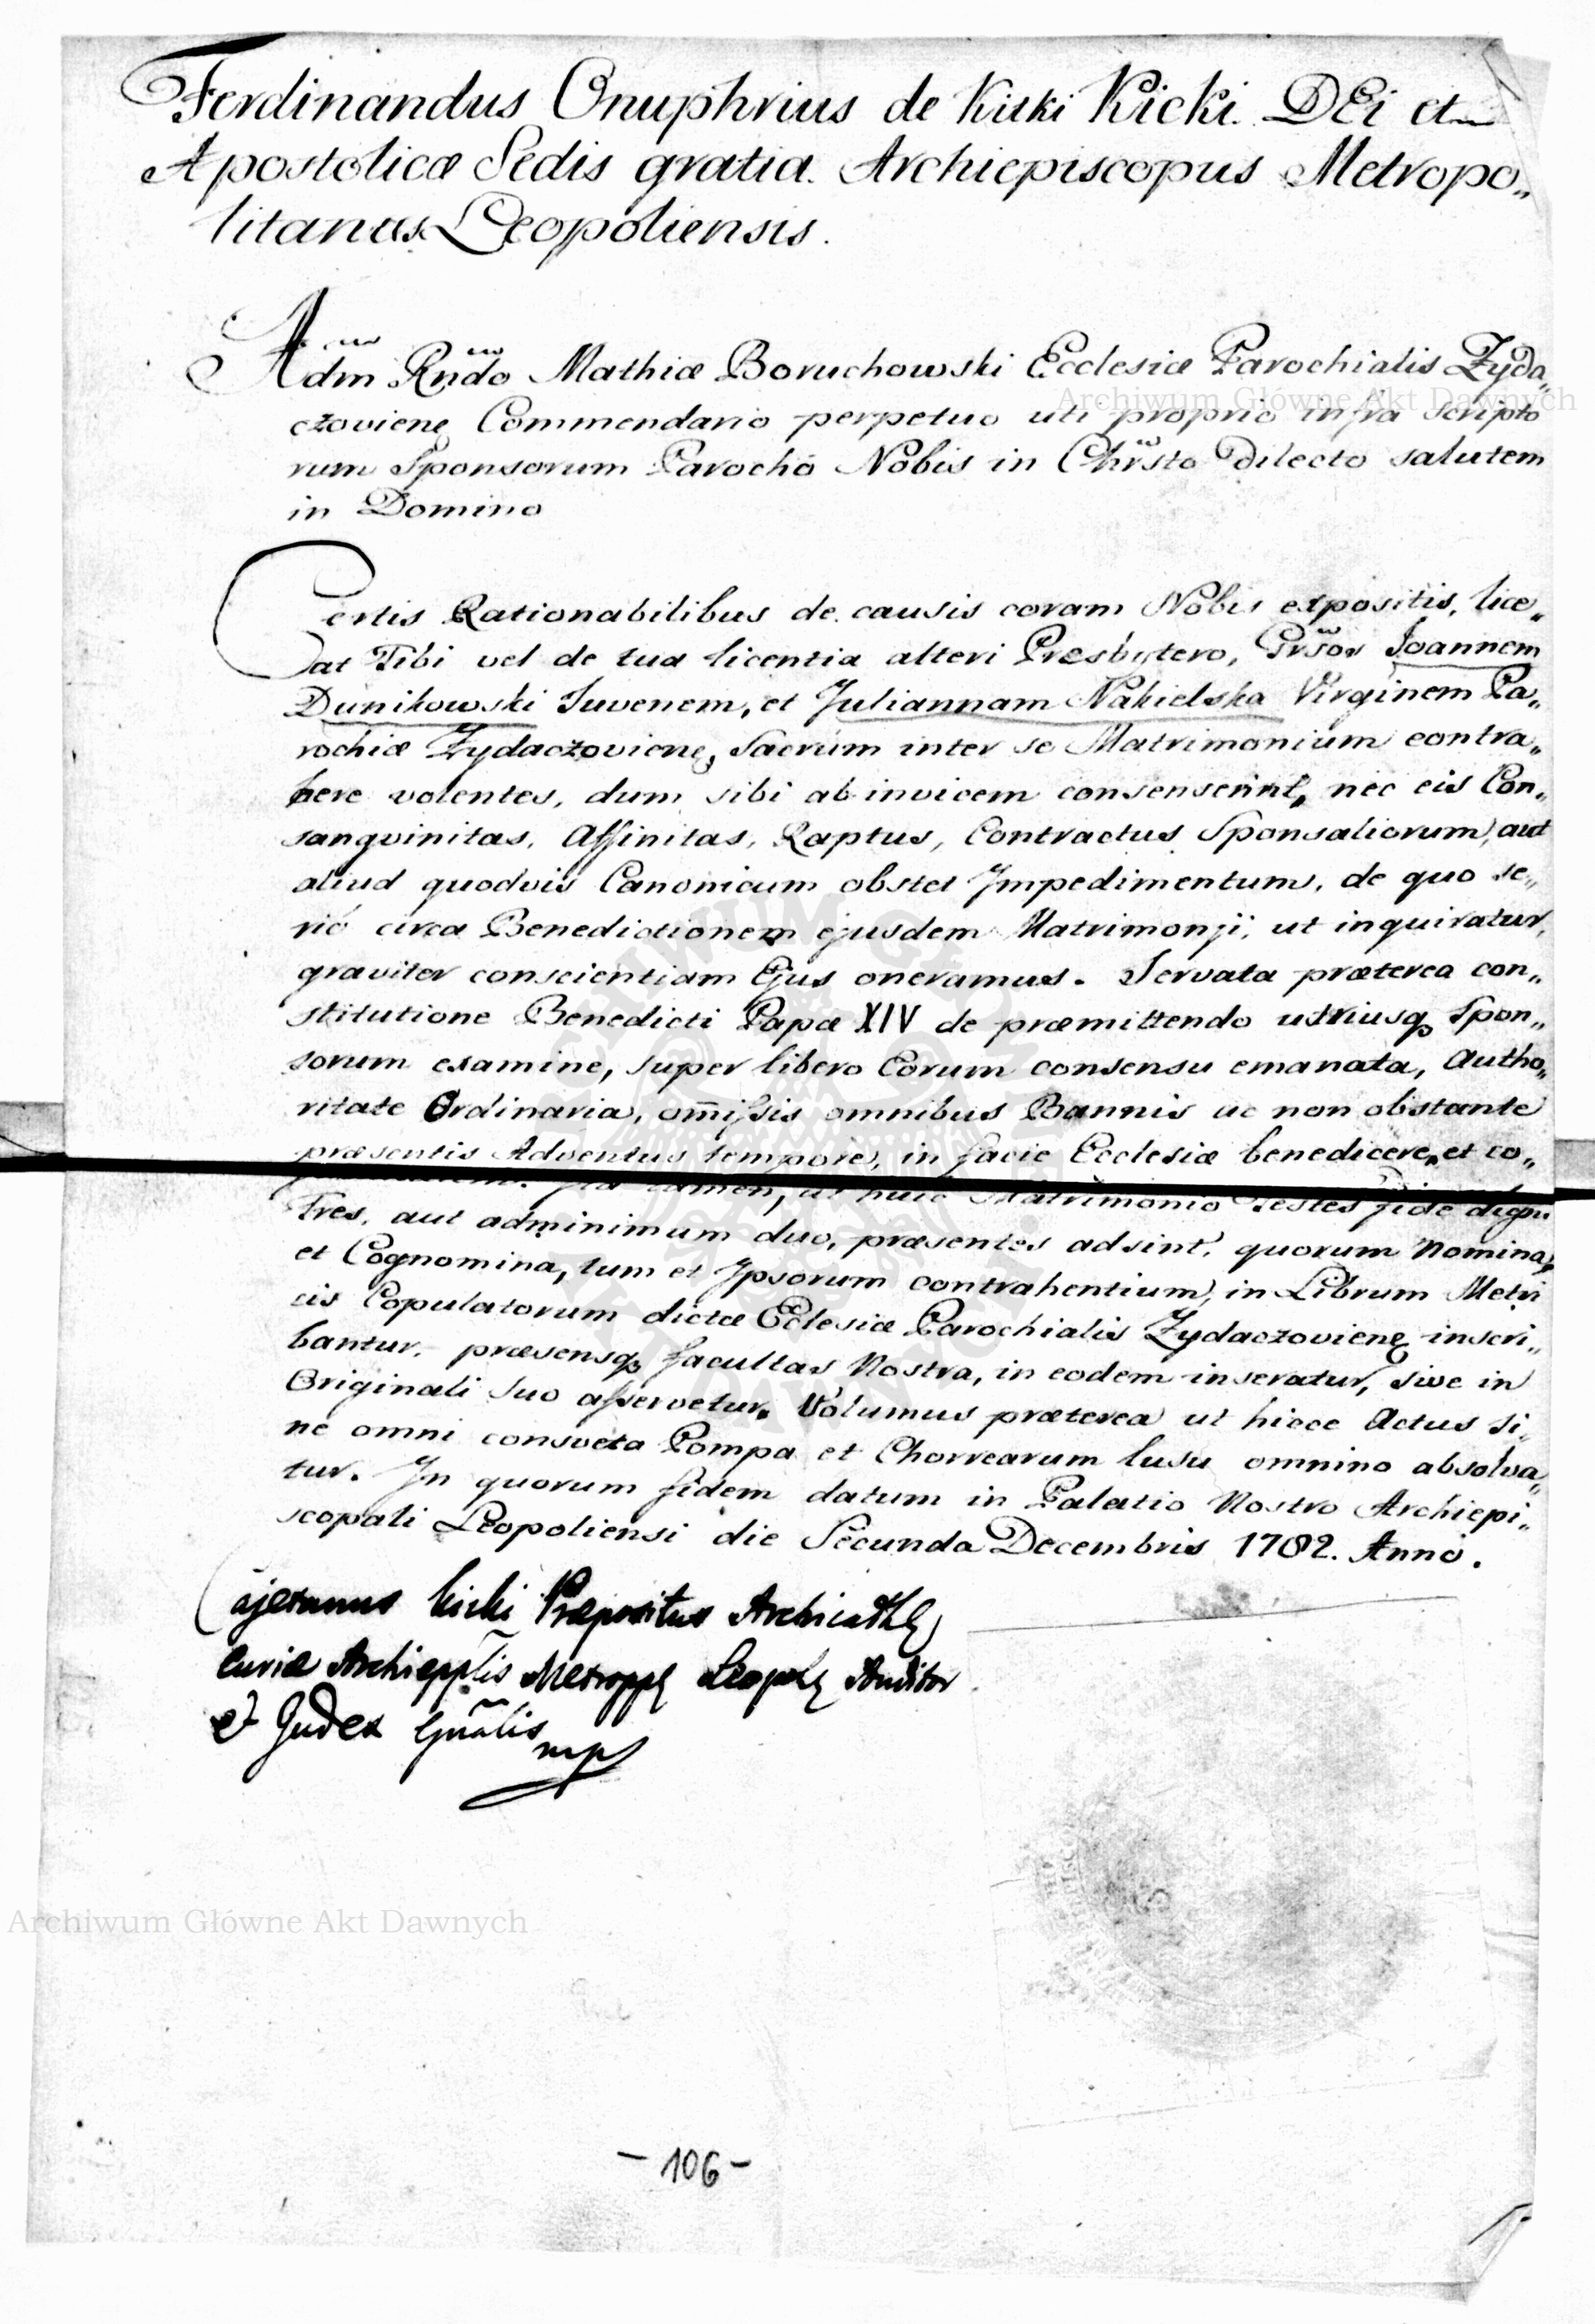 Ferdinandus Onuphrius de Kitki Kicki. DEi et
Apostolicæ Sedis gratia. Archiepiscopus Metropo„
litanus Leopoliensis.
Adm Rndo Mathiæ Boruchowski Ecclesiæ Parochialis Zyda„
czoviens Commendario perpetuo uti proprio infra scripto
rum Sponsorum Parocho Nobis in Christo Dilecto salutem
in Domino
Certis Rationabilibus de causis coram Nobis expositis, lice„
at Tibi vel de tua licentia alteri Presbytero, Joannem
Dunikowski Iuvenem, et Juliannam Nakielska Virginem Pa„
rochiæ Zydaczoviens, Sacrum inter se Matrimonium contra„
here volentes, dum sibi ab invicem consenserint, nec eis Con„
sangvinitas, Affinitas, Raptus, Contractus Sponsaliorum, aut
aliud quodvis Canonicum obstet Jmpedimentum, de quo se„
rió circa Benedictionem ejusdem Matrimonji, ut inquiratur,
graviter conscientiam Ejus oneramus. Servata præterea con„
stitutione Benedicti Papæ XIV de præmittendo utriusq Spon„
sorum examine, super libero Eorum consensu emanata, Autho„
ritate Ordinaria, omissis omnibus Bannis ac non obstante
præsentis Adventus tempore, in facie Ecclesiæ benedicere, et co„
Ita tamen, ut huic Matrimonio Testes fide digni
Tres, aut adminimum duo, præsentes adsint, quorum Nomina,
et Cognomina, tum et Jpsorum contrahentium, in Librum Metri
cis Copulatorum dictæ Eclesiæ Parochialis Zydaczoviens inscri„
bantur. præsensq facultas Nostra, in eodem inseratur, sive in
Originali suo asservetur. Volumus præterea ut hicce Actus si„
ne omni consveta Pompa et Chorrearum lusu omnino absolva„
tur. Jn quorum fidem datum in Palatio Nostro Archiepi„
scopali Leopoliensi die Secunda Decembris 1782. Anno.
Cajetanus Kicki Præpositus Archicathl
Curiæ Archiepplis Metroppl Leopol Auditor
et Judex Gnalis
mp
- 106 -
Archiwum Główne Akt Dawnych
Archiwum Główne Akt Dawnych